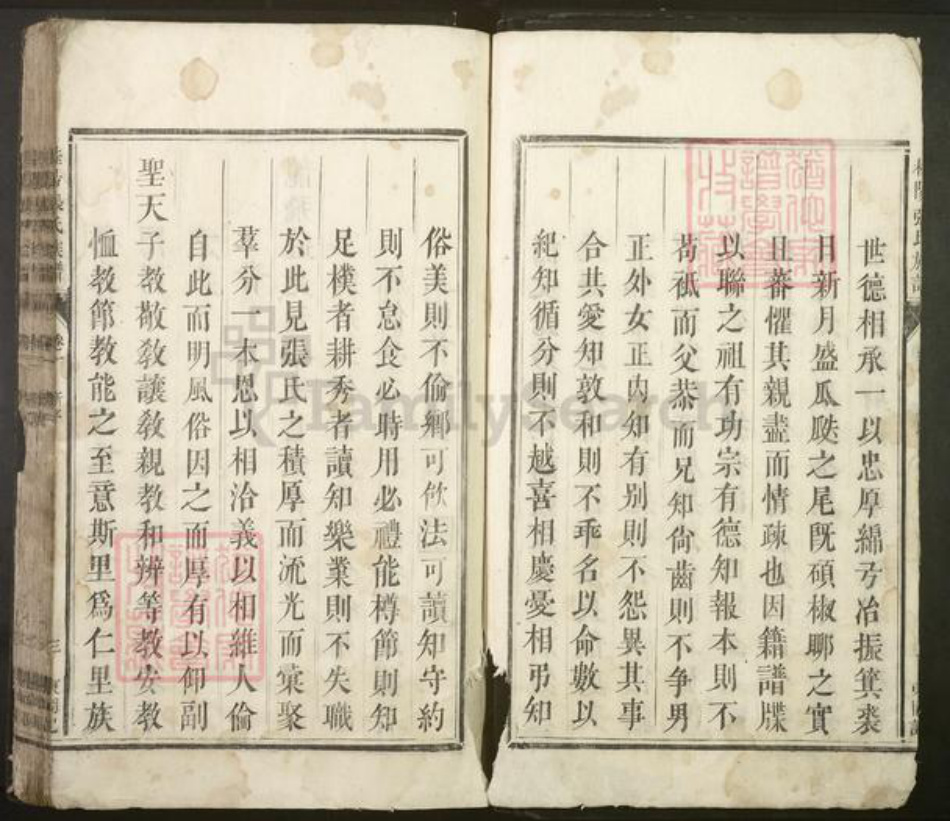 世德相承一以忠厚綿弓冶振箕裘
日新月盛瓜瓞之尾既碩椒聊之實
且蕃懼其親盡而情疎也因籍譜牒
以聯之祖有功宗有德知報本則不
苟祗而父恭而兄知尙齒則不争男
正外女正内知有别則不怨異其事
合其愛知敦和則不乖名以命數以
紀知循分則不越喜相慶憂相弔知
俗美則不偷鄉可飲法可讀知守約
則不怠食必時用必禮能樽節則知
足樸者耕秀者讀知樂業則不失職
於此見張氏之積厚而流光而彙聚
羣分一本恩以相洽義以相維人倫
自此而明風俗因之而厚有以仰副
聖天子教敬教讓教親教和辨等教安教
恤教節教能之至意斯里爲仁里族
FamilySearch